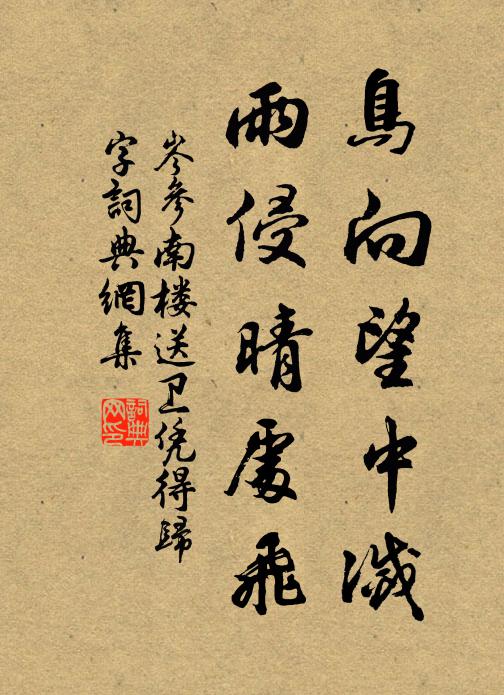 鳥向望中滅
雨侵晴處飛
岑參南楼送卫凭得歸
字詞典網集
詞典
网印